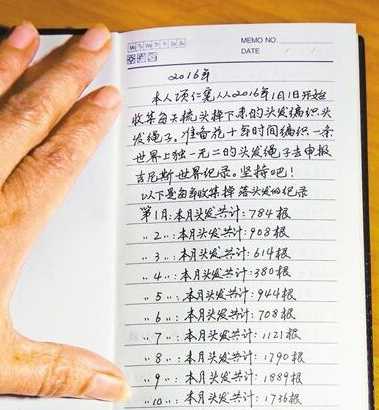 MEMO NO.
Mo Tu We Th Fr Sa Su
DATE / /
2016年
本人项仁宪从2016年1月1日开始
收集每天梳头掉下来的头发编织头
发绳子。准备花十年时间编织一条
世界上独一无二的头发绳子去申报
吉尼斯世界纪录。坚持吧!
以下是每月收集掉落头发的纪录
第1月:本月头发共计:784根
〃2〃:本月头发共计:908根
〃3〃:本月头发共计:614根
〃4〃:本月头发共计:380根
〃5〃:本月头发共计:944根
〃6〃:本月头发共计:708根
〃7〃:本月头发共计:1121根
〃8〃:本月头发共计:1790根
〃9〃:本月头发共计:1889根
〃10〃:本月头发共计:1736根